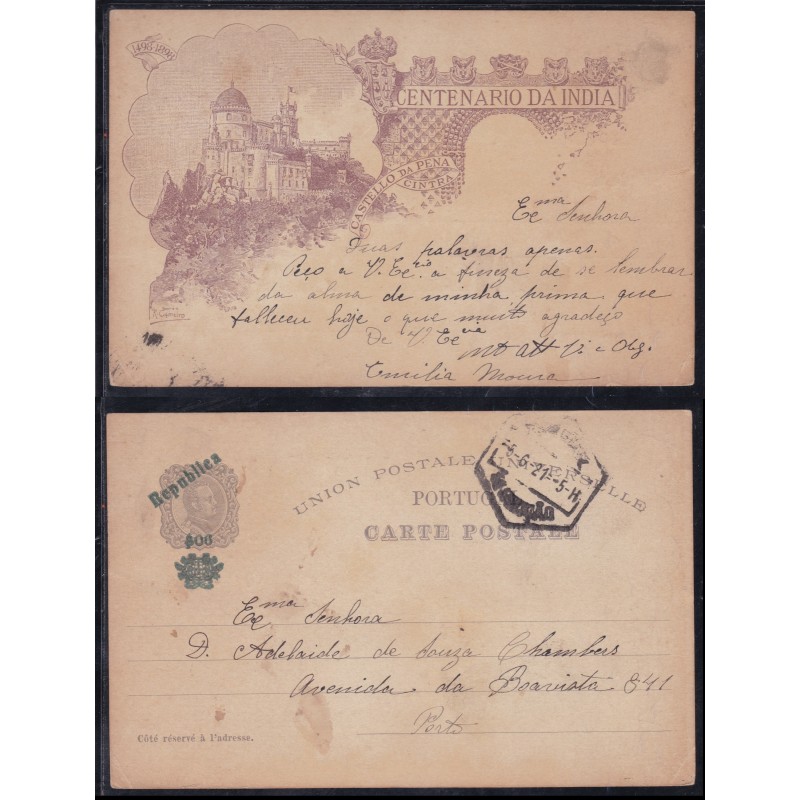 1498-1898
CENTENARIO DA INDIA
CASTELLO DA PENA
CINTRA
Exma Senhora
Duas palavras apenas.
Peço a V. Excia a fineza de se lembrar
da alma de minha prima que
falleceu hoje o que muito agradeço
De V. Excia
Mt Att V. e Obg.
Emilia Moura
UNION POSTALE UNIVERSELLE
PORTUGAL
CARTE POSTALE
Republica
$06
-5-6.21-5-H
Exma Senhora
D. Adelaide de Souza Chambers
Avenida da Boavista 841
Porto
Côté réservé à l'adresse.